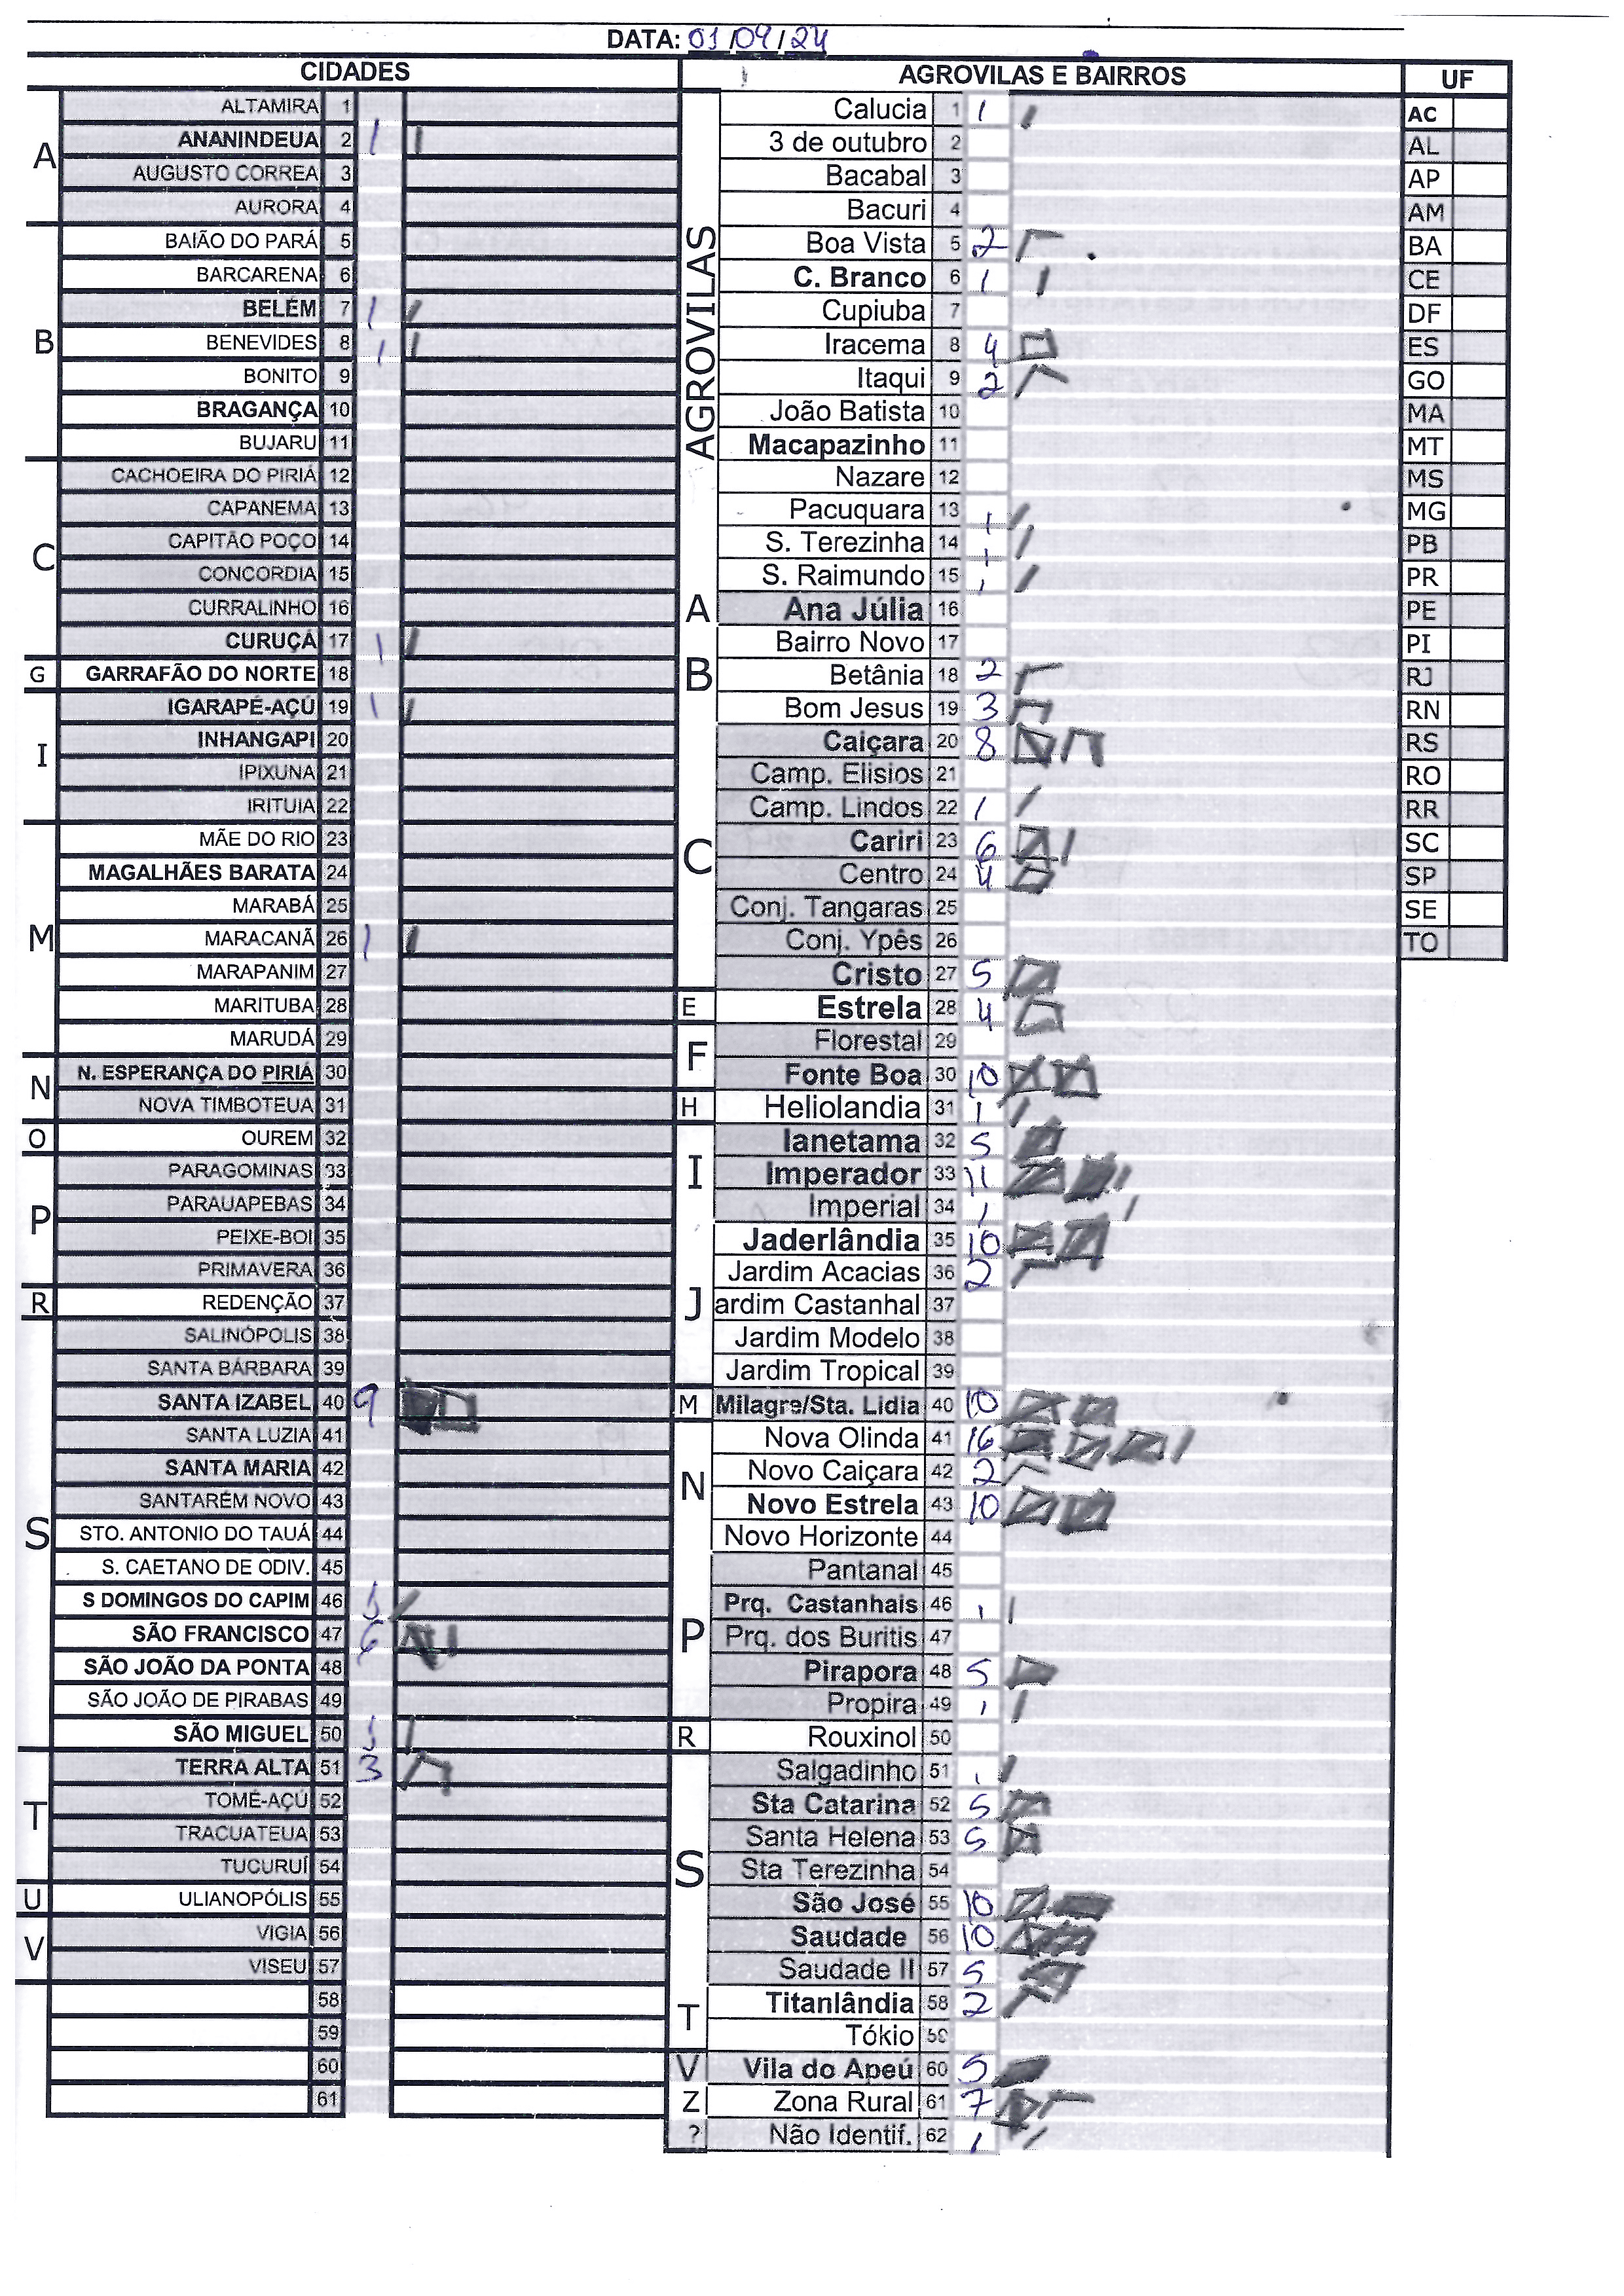 DATA: 01/09/24
CIDADES
A
ALTAMIRA 1
ANANINDEUA 2 1
AUGUSTO CORREA 3
AURORA 4
B
BAIÃO DO PARÁ 5
BARCARENA 6
BELÉM 7 1
BENEVIDES 8 1
BONITO 9
BRAGANÇA 10
BUJARU 11
C
CACHOEIRA DO PIRIÁ 12
CAPANEMA 13
CAPITÃO POÇO 14
CONCORDIA 15
CURRALINHO 16
CURUÇÁ 17 1
G
GARRAFÃO DO NORTE 18
I
IGARAPÉ-AÇÚ 19 1
INHANGAPI 20
IPIXUNA 21
IRITUIA 22
M
MÃE DO RIO 23
MAGALHÃES BARATA 24
MARABÁ 25
MARACANÃ 26 1
MARAPANIM 27
MARITUBA 28
MARUDÁ 29
N
N. ESPERANÇA DO PIRIÁ 30
NOVA TIMBOTEUA 31
O
OUREM 32
P
PARAGOMINAS 33
PARAUAPEBAS 34
PEIXE-BOI 35
PRIMAVERA 36
R
REDENÇÃO 37
S
SALINÓPOLIS 38
SANTA BÁRBARA 39
SANTA IZABEL 40 9
SANTA LUZIA 41
SANTA MARIA 42
SANTARÉM NOVO 43
STO. ANTONIO DO TAUÁ 44
S. CAETANO DE ODIV. 45
S DOMINGOS DO CAPIM 46
SÃO FRANCISCO 47 6
SÃO JOÃO DA PONTA 48
SÃO JOÃO DE PIRABAS 49
SÃO MIGUEL 50
T
TERRA ALTA 51 3
TOMÉ-AÇÚ 52
TRACUATEUA 53
TUCURUÍ 54
U
ULIANOPÓLIS 55
V
VIGIA 56
VISEU 57
58
59
60
61
AGROVILAS E BAIRROS
AGROVILAS
Calucia 1 1
3 de outubro 2
Bacabal 3
Bacuri 4
Boa Vista 5 2
C. Branco 6 1
Cupiuba 7
Iracema 8 4
Itaqui 9 2
João Batista 10
Macapazinho 11
Nazare 12
Pacuquara 13 1
S. Terezinha 14 1
S. Raimundo 15 1
A
Ana Júlia 16
B
Bairro Novo 17
Betânia 18 2
Bom Jesus 19 3
C
Caiçara 20 8
Camp. Elisios 21
Camp. Lindos 22 1
Cariri 23 6
Centro 24 4
Conj. Tangaras 25
Conj. Ypês 26
Cristo 27 5
E
Estrela 28 4
F
Florestal 29
Fonte Boa 30 10
H
Heliolandia 31 1
I
Ianetama 32 5
Imperador 33 11
Imperial 34 1
J
Jaderlândia 35 10
Jardim Acacias 36 2
ardim Castanhal 37
Jardim Modelo 38
Jardim Tropical 39
M
Milagre/Sta. Lidia 40 10
N
Nova Olinda 41 16
Novo Caiçara 42 2
Novo Estrela 43 10
Novo Horizonte 44
P
Pantanal 45
Prq. Castanhais 46 1
Prq. dos Buritis 47
Pirapora 48 5
Propira 49 1
R
Rouxinol 50
S
Salgadinho 51 1
Sta Catarina 52 5
Santa Helena 53 5
Sta Terezinha 54
São José 55 10
Saudade 56 10
Saudade II 57 5
T
Titanlândia 58 2
Tókio 59
V
Vila do Apeú 60 5
Z
Zona Rural 61 7
?
Não Identif. 62 1
UF
AC
AL
AP
AM
BA
CE
DF
ES
GO
MA
MT
MS
MG
PB
PR
PE
PI
RJ
RN
RS
RO
RR
SC
SP
SE
TO